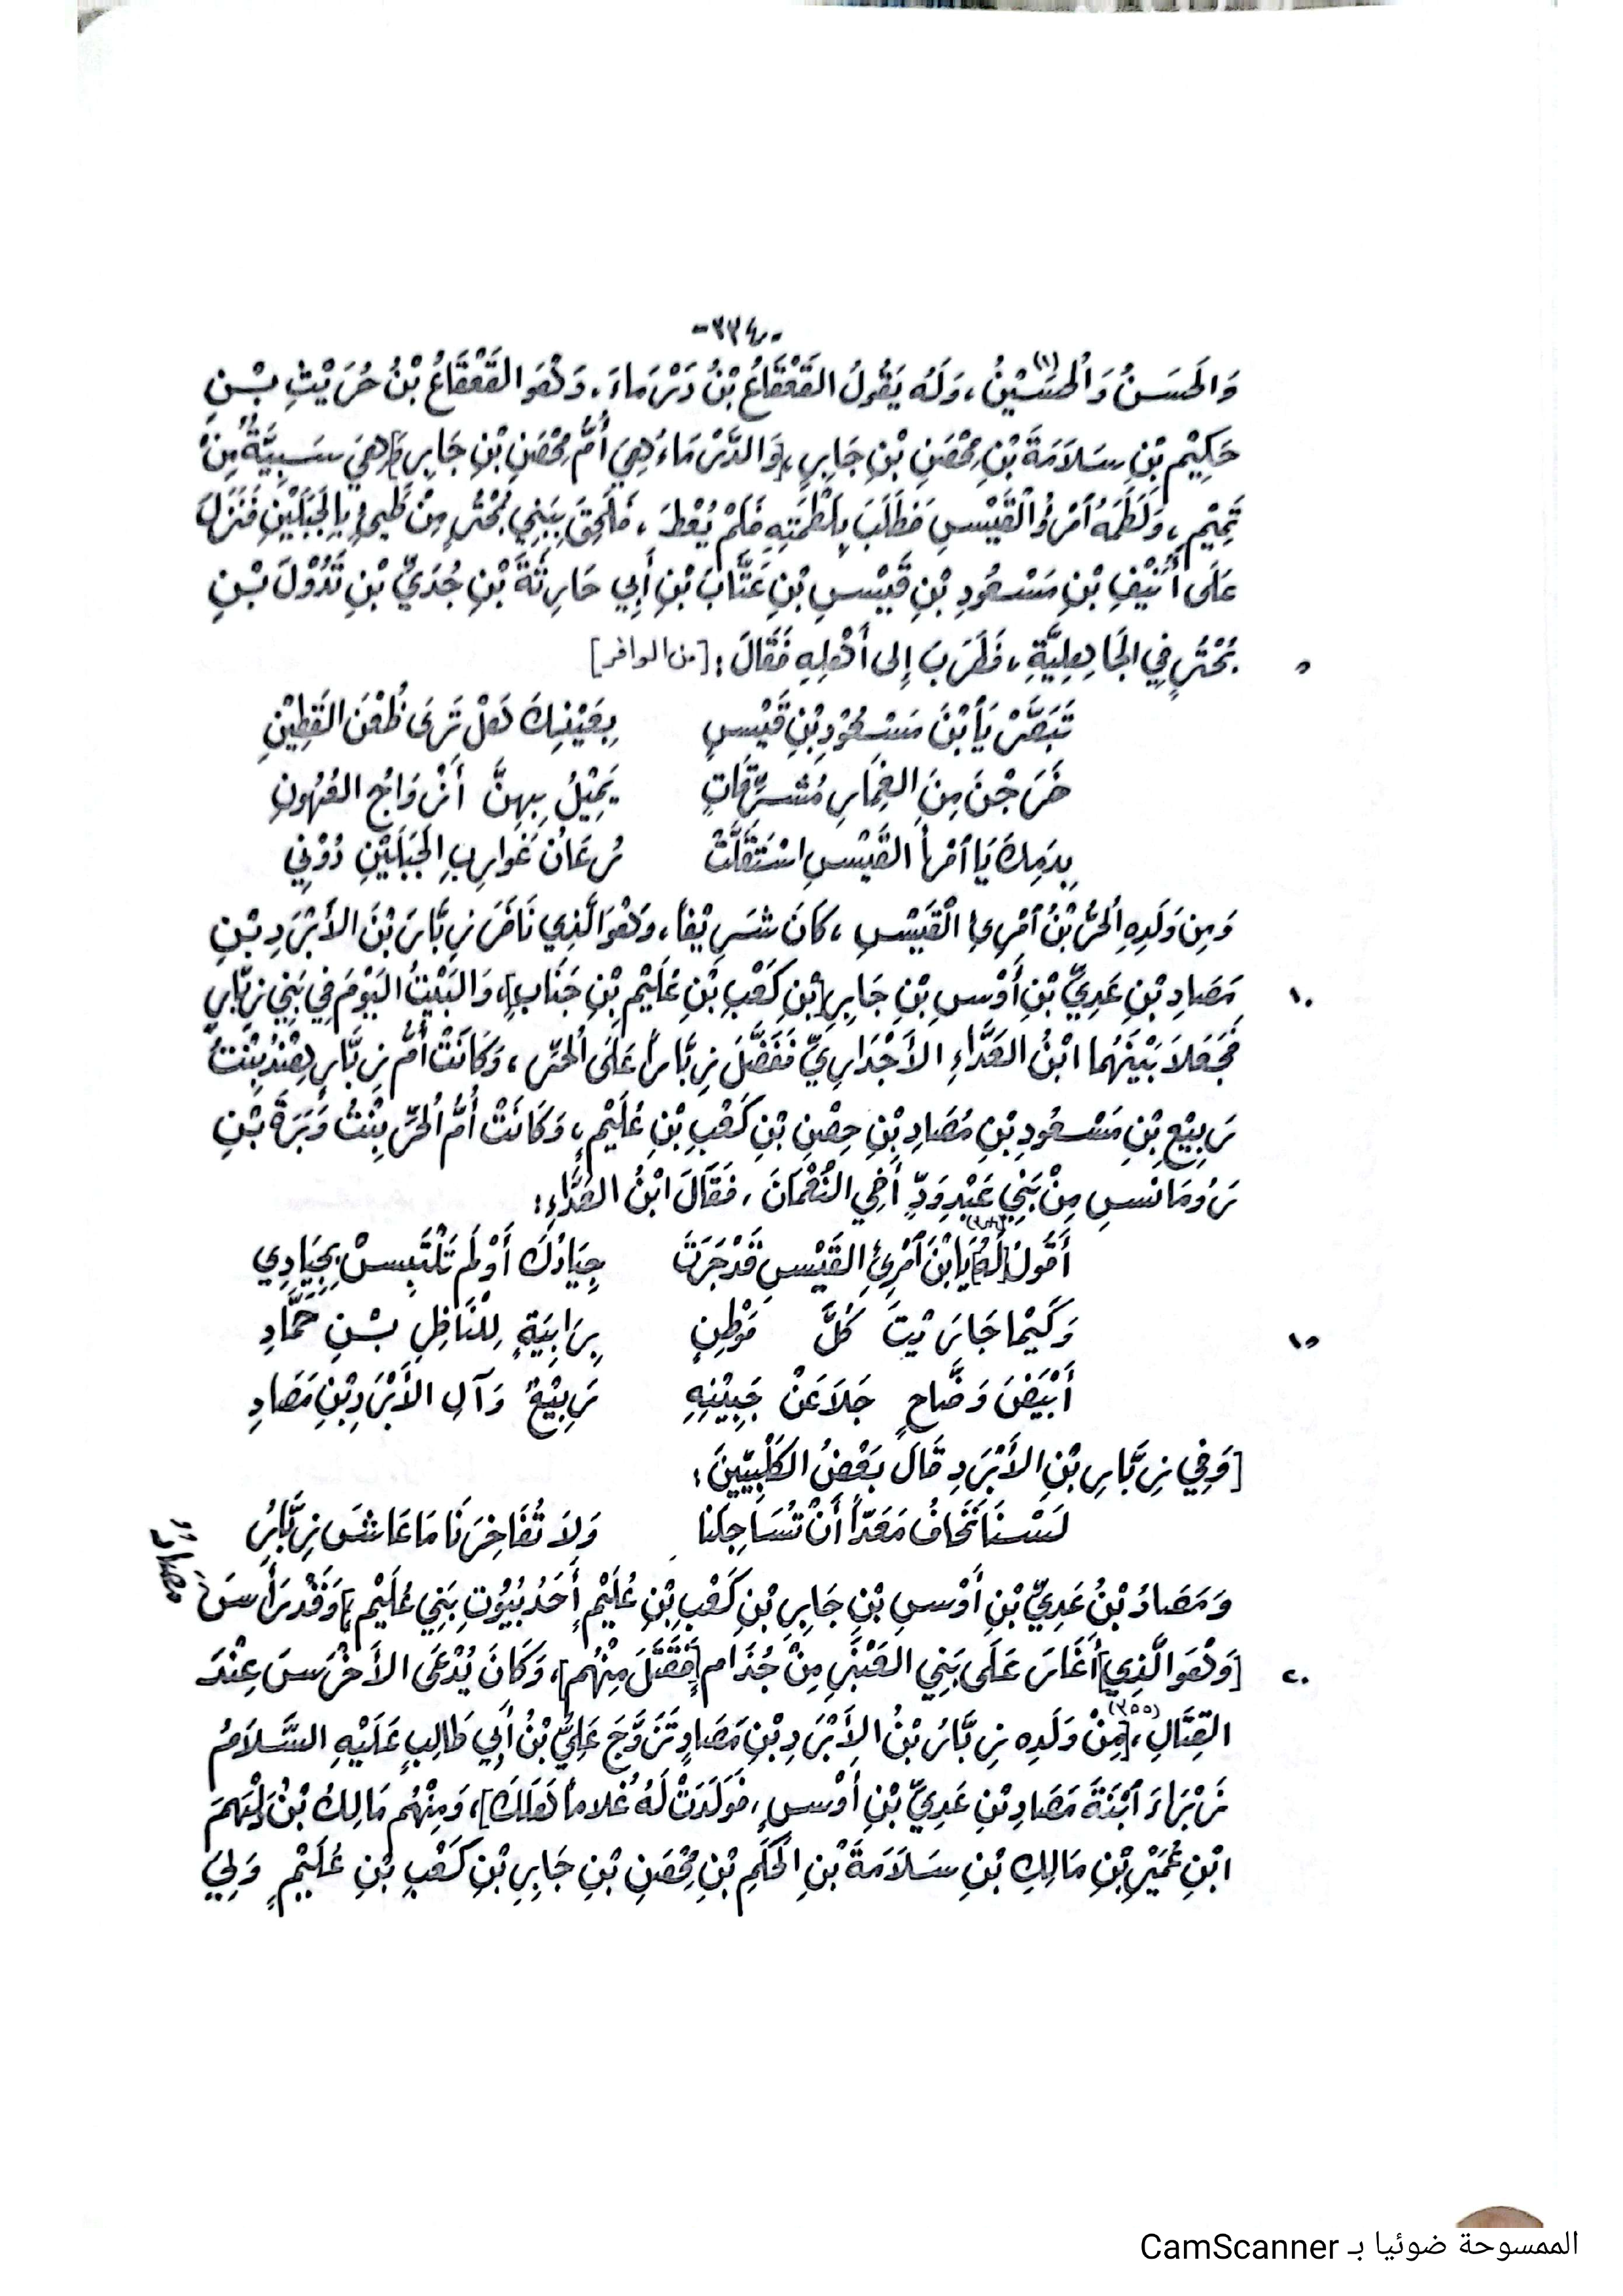 -٣٣٤-
وَالحَسَنُ وَالحُسَيْنُ(١)، وَلَهُ يَقُولُ القَعْقَاعُ بْنُ دَرْمَاءَ، وَهُوَ القَعْقَاعُ بْنُ حُرَيْثِ بْنِ
حَكِيْمِ بْنِ سَلاَمَةَ بْنِ مِحْصَنِ بْنِ جَابِرٍ، [وَالدَّرْمَاءُ هِيَ أُمُّ مِحْصَنِ بْنِ جَابِرٍ] وَهِيَ سَبِيَّةٌ مِنْ
تَمِيْمٍ، وَلَطَمَهُ امْرُؤُ القَيْسِ فَطَلَبَ بِلَطْمَتِهِ فَلَمْ يُعْطَ، فَلَحِقَ بِبَنِي بُحْتُرٍ مِنْ طَيِّءٍ بِالجَبَلَيْنِ فَنَزَلَ
عَلَى أُنَيْفِ بْنِ مَسْعُودِ بْنِ قَيْسِ بْنِ عَتَّابَ بْنِ أَبِي حَارِثَةَ بْنِ جُدَيِّ بْنِ تَدُوْلَ بْنِ
٥ بُحْتُرٍ فِي الجَاهِلِيَّةِ، فَطَرَبَ إِلى أَهْلِهِ فَقَالَ: [من الوافر]
تَبَصَّرْ يَا بْنَ مَسْعُوْدِ بْنِ قَيْسٍ بِعَيْنِكَ هَلْ تَرَى ظُعْنَ القَطِيْنِ
خَرَجْنَ مِنَ الغِمَارِ مُشَرِّقَاتٍ يَمِيْلُ بِهِنَّ أَزْوَاجُ العُهُونِ
بِدَمِكَ يَا امْرَأَ القَيْسِ اسْتَقَلَّتْ رُعَانُ غَوَارِبِ الجَبَلَيْنِ دُوْنِي
وَمِن وَلَدِهِ الحُرُّ بْنُ امْرِئِ القَيْسِ، كَانَ شَرِيْفاً، وَهُوَ الَّذِي نَافَرَ زِبَّارَ بْنَ الأَبْرَدِ بْنِ
١٠ مَصَادِ بْنِ عَدِيِّ بْنِ أَوْسِ بْنِ جَابِرِ [بْنِ كَعْبِ بْنِ عُلَيْمِ بْنِ جَنَابٍ]، وَالبَيْتُ اليَوْمَ فِي بَنِي زِبَّارٍ
فَجَعَلاَ بَيْنَهُمَا ابْنُ العَدَّاءِ الأَجْدَارِيِّ فَفَضَّلَ زِبَّاراً عَلَى الحُرِّ، وَكَانَتْ أُمُّ زِبَّارٍ هِنْدُ بِنْتُ
رَبِيْعِ بْنِ مَسْعُودِ بْنِ مَصَادِ بْنِ حِصْنِ بْنِ كَعْبِ بْنِ عُلَيْمٍ، وَكَانَتْ أُمُّ الحُرِّ بِنْتُ وَبَرَةَ بْنِ
رُوْمَانسِ مِنْ بَنِي عَبْدِ وَدٍّ أَخِي النُّعْمَانَ، فَقَالَ ابْنُ العَدَّاءِ:
أَقُولُ [لَهُ] يَا ابْنَ امْرِئِ القَيْسِ قَدْ جَرَتَ جِيَادُكَ أَوْلَم تَلْتَبِسْ بِجِيَادِي
١٥ وَكَيْما جَارَيْتَ كُلَّ مَوْطِنٍ بِرَابِيَةٍ لِلْنَاظِلِ بْنِ حَمَّادِ
أَبْيَضَ وَضَّاحٍ جَلاَ عَنْ جَبِيْنِهِ رَبِيْعٌ وَآلِ الأَبْرَدِ بْنِ مَصَادِ
[وَفِي زِبَّارِ بْنِ الأَبْرَدِ قَالَ بَعْضُ الكَلْبِيّينَ:
لَسْنَا نَخَافُ مَعَدّاً أَنْ تُسَاجِلَنَا وَلاَ تُفَاخِرَنَا مَا عَاشَ زِبَّارُ
وَمَصَادُ بْنُ عَدِيِّ بْنِ أَوْسِ بْنِ جَابِرِ بْنِ كَعْبِ بْنِ عُلَيْمٍ أَحَدُ بُيُوْتِ بَنِي عُلَيْمٍ]، وَقَدْ رَأَسَ مَصَادٌ
٢٠ [وَهُوَ الَّذِي] أَغَارَ عَلَى بَنِي العَنْبَرِ مِنْ جُذَامٍ [فَقَتَلَ مِنْهُم]، وَكَانَ يُدْعَى الأَخْرَسَ عِنْدَ
القِتَالِ، [مِنْ(٣٥٥) وَلَدِهِ زِبَّارُ بْنُ الأَبْرَدِ بْنِ مَصَادٍ تَزَوَّجَ عَلِيُّ بْنُ أَبِي طَالِبٍ عَلَيْهِ السَّلاَمُ
زَبْرَاءَ ابْنَةَ مَصَادِ بْنِ عَدِيِّ بْنِ أَوْسٍ، فَوَلَدَتْ لَهُ غُلاماً هَلَكَ]، وَمِنْهُم مَالِكُ بْنُ لَهْيَمَ
ابْنِ عُمَيْرِ بْنِ مَالِكِ بْنِ سَلاَمَةَ بْنِ الحَكَمِ بْنِ مِحْصَنِ بْنِ جَابِرِ بْنِ كَعْبِ بْنِ عُلَيْمٍ وَلِيَ
الممسوحة ضوئيا بـ CamScanner